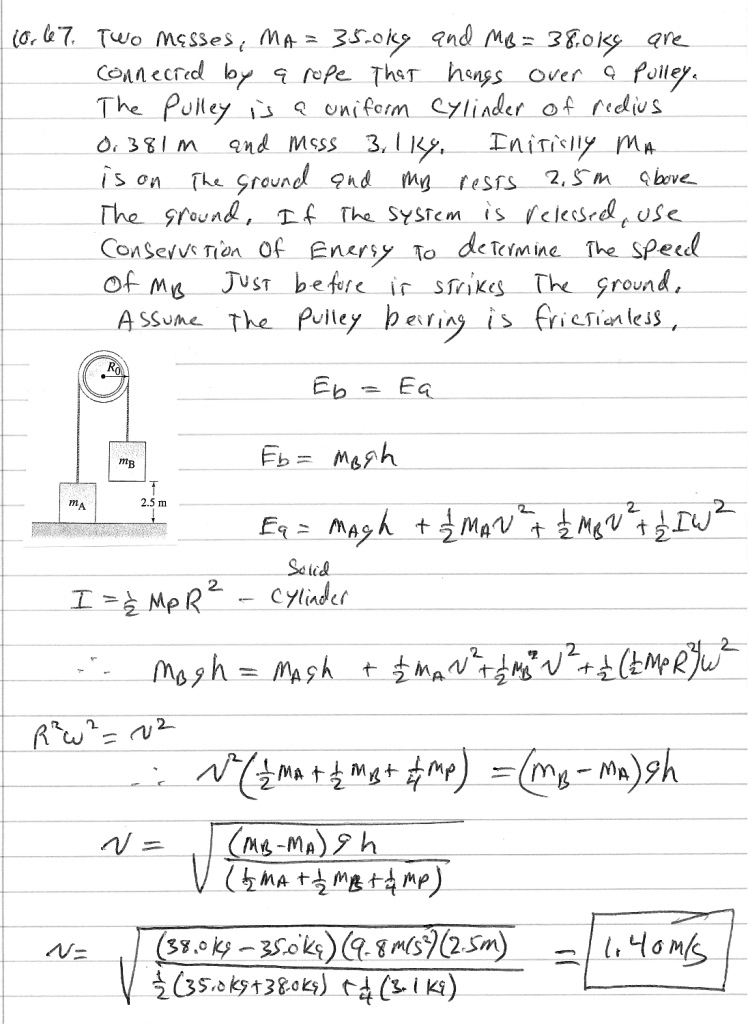 10.67. Two masses, mA = 35.0kg and mB = 38.0kg are
connected by a rope that hangs over a pulley.
The pulley is a uniform cylinder of radius
0.381m and mass 3.1kg. Initially mA
is on the ground and mB rests 2.5m above
the ground. If the system is released, use
Conservation of Energy to determine the speed
of mB just before it strikes the ground.
Assume the pulley bearing is frictionless.
R0
mB
mA
2.5 m
Eb = Ea
Eb = mBgh
Ea = mAgh + ½mAv² + ½mBv² + ½Iω²
I = ½ MPR² - Solid Cylinder
∴ mBgh = mAgh + ½mAv² + ½mB²v² + ½(½MPR²)ω²
R²ω² = v²
∴ v²(½mA + ½mB + ¼mP) = (mB - mA)gh
v = √((mB-mA)gh / (½mA + ½mB + ¼mP))
v = √((38.0kg - 35.0kg)(9.8m/s²)(2.5m) / ½(35.0kg+38.0kg) + ¼(3.1kg)) = 1.40m/s